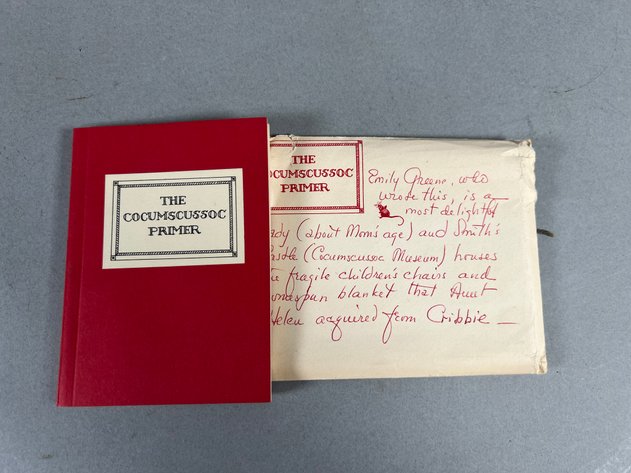 THE
COCUMSCUSSOC
PRIMER
THE
OCUMSCUSSOC
PRIMER
Emily Greene, who
wrote this, is a
most delightful
ady (about Mom's age) and Smith's
astle (Cocumscussoc Museum) houses
fragile children's chairs and
blanket that Aunt
Helen acquired from Cribbie —